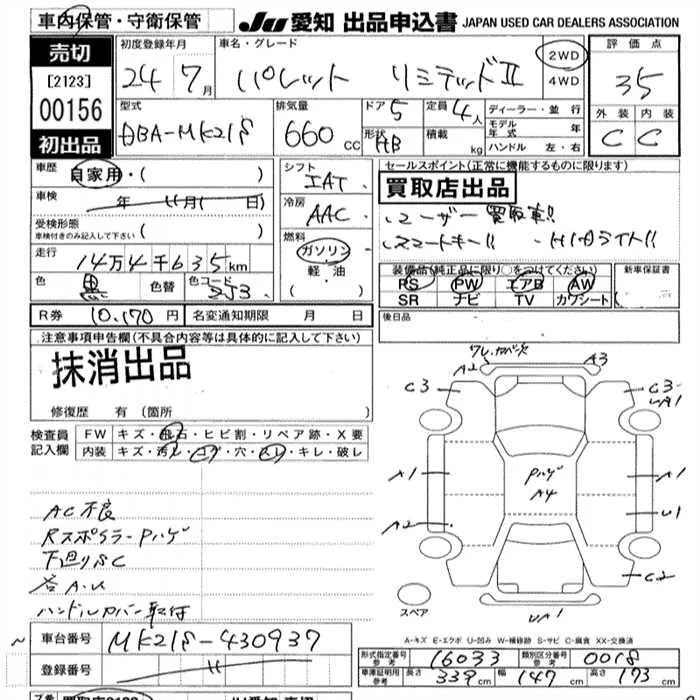 車内保管・守衛保管 JU 愛知 出品申込書 JAPAN USED CAR DEALERS ASSOCIATION
売切 [2123] 00156 初出品
初度登録年月 24 7月
車名・グレード パレット リミテッドⅡ
2WD 4WD
評価点 35
外装 C 内装 C
型式 DBA-MK21S
排気量 660 cc
ドア 5
形状 HB
定員 4人
積載 kg
ディーラー・並行
モデル年式 年
ハンドル 左・右
車歴 自家用・( )
車検 年 月( 日)
受検形態 ( )
車検付きのみ記入して下さい
走行 14万4千635km
色 黒 色替 色コード ZJ3
シフト IAT
冷房 AAC
燃料 ガソリン・軽・油
セールスポイント(正常に機能するものに限ります)
買取店出品
・ユーザー買取車!!
・スマートキー!! ・HIDライト!!
装備品(純正品に限り○をつけてください) 新車保証書
PS PW エアB AW
SR ナビ TV カワシート
R券 10.170円 名変通知期限 月 日
後日品
注意事項申告欄(不具合内容等は具体的に記入して下さい)
抹消出品
修復歴 有 (箇所 )
検査員記入欄
FW キズ・飛石・ヒビ割・リペア跡・X要
内装 キズ・汚レ・コゲ・穴・スレ・キレ・破レ
AC不良
RスポイラーPハゲ
下廻りSC
各A.U
ハンドルカバー取付
A2 A3
C3 C3 UA1
A1 Pハゲ A4 A1
A2 U1
C2
UA1
スペア
A-キズ E-エクボ U-凹み W-補修跡 S-サビ C-腐食 XX-交換済
車台番号 MK21S-430937
登録番号
形式指定番号 参考 16033 類別区分番号 参考 0018
車庫証明用 参考 長さ 339cm 幅 147cm 高さ 173cm